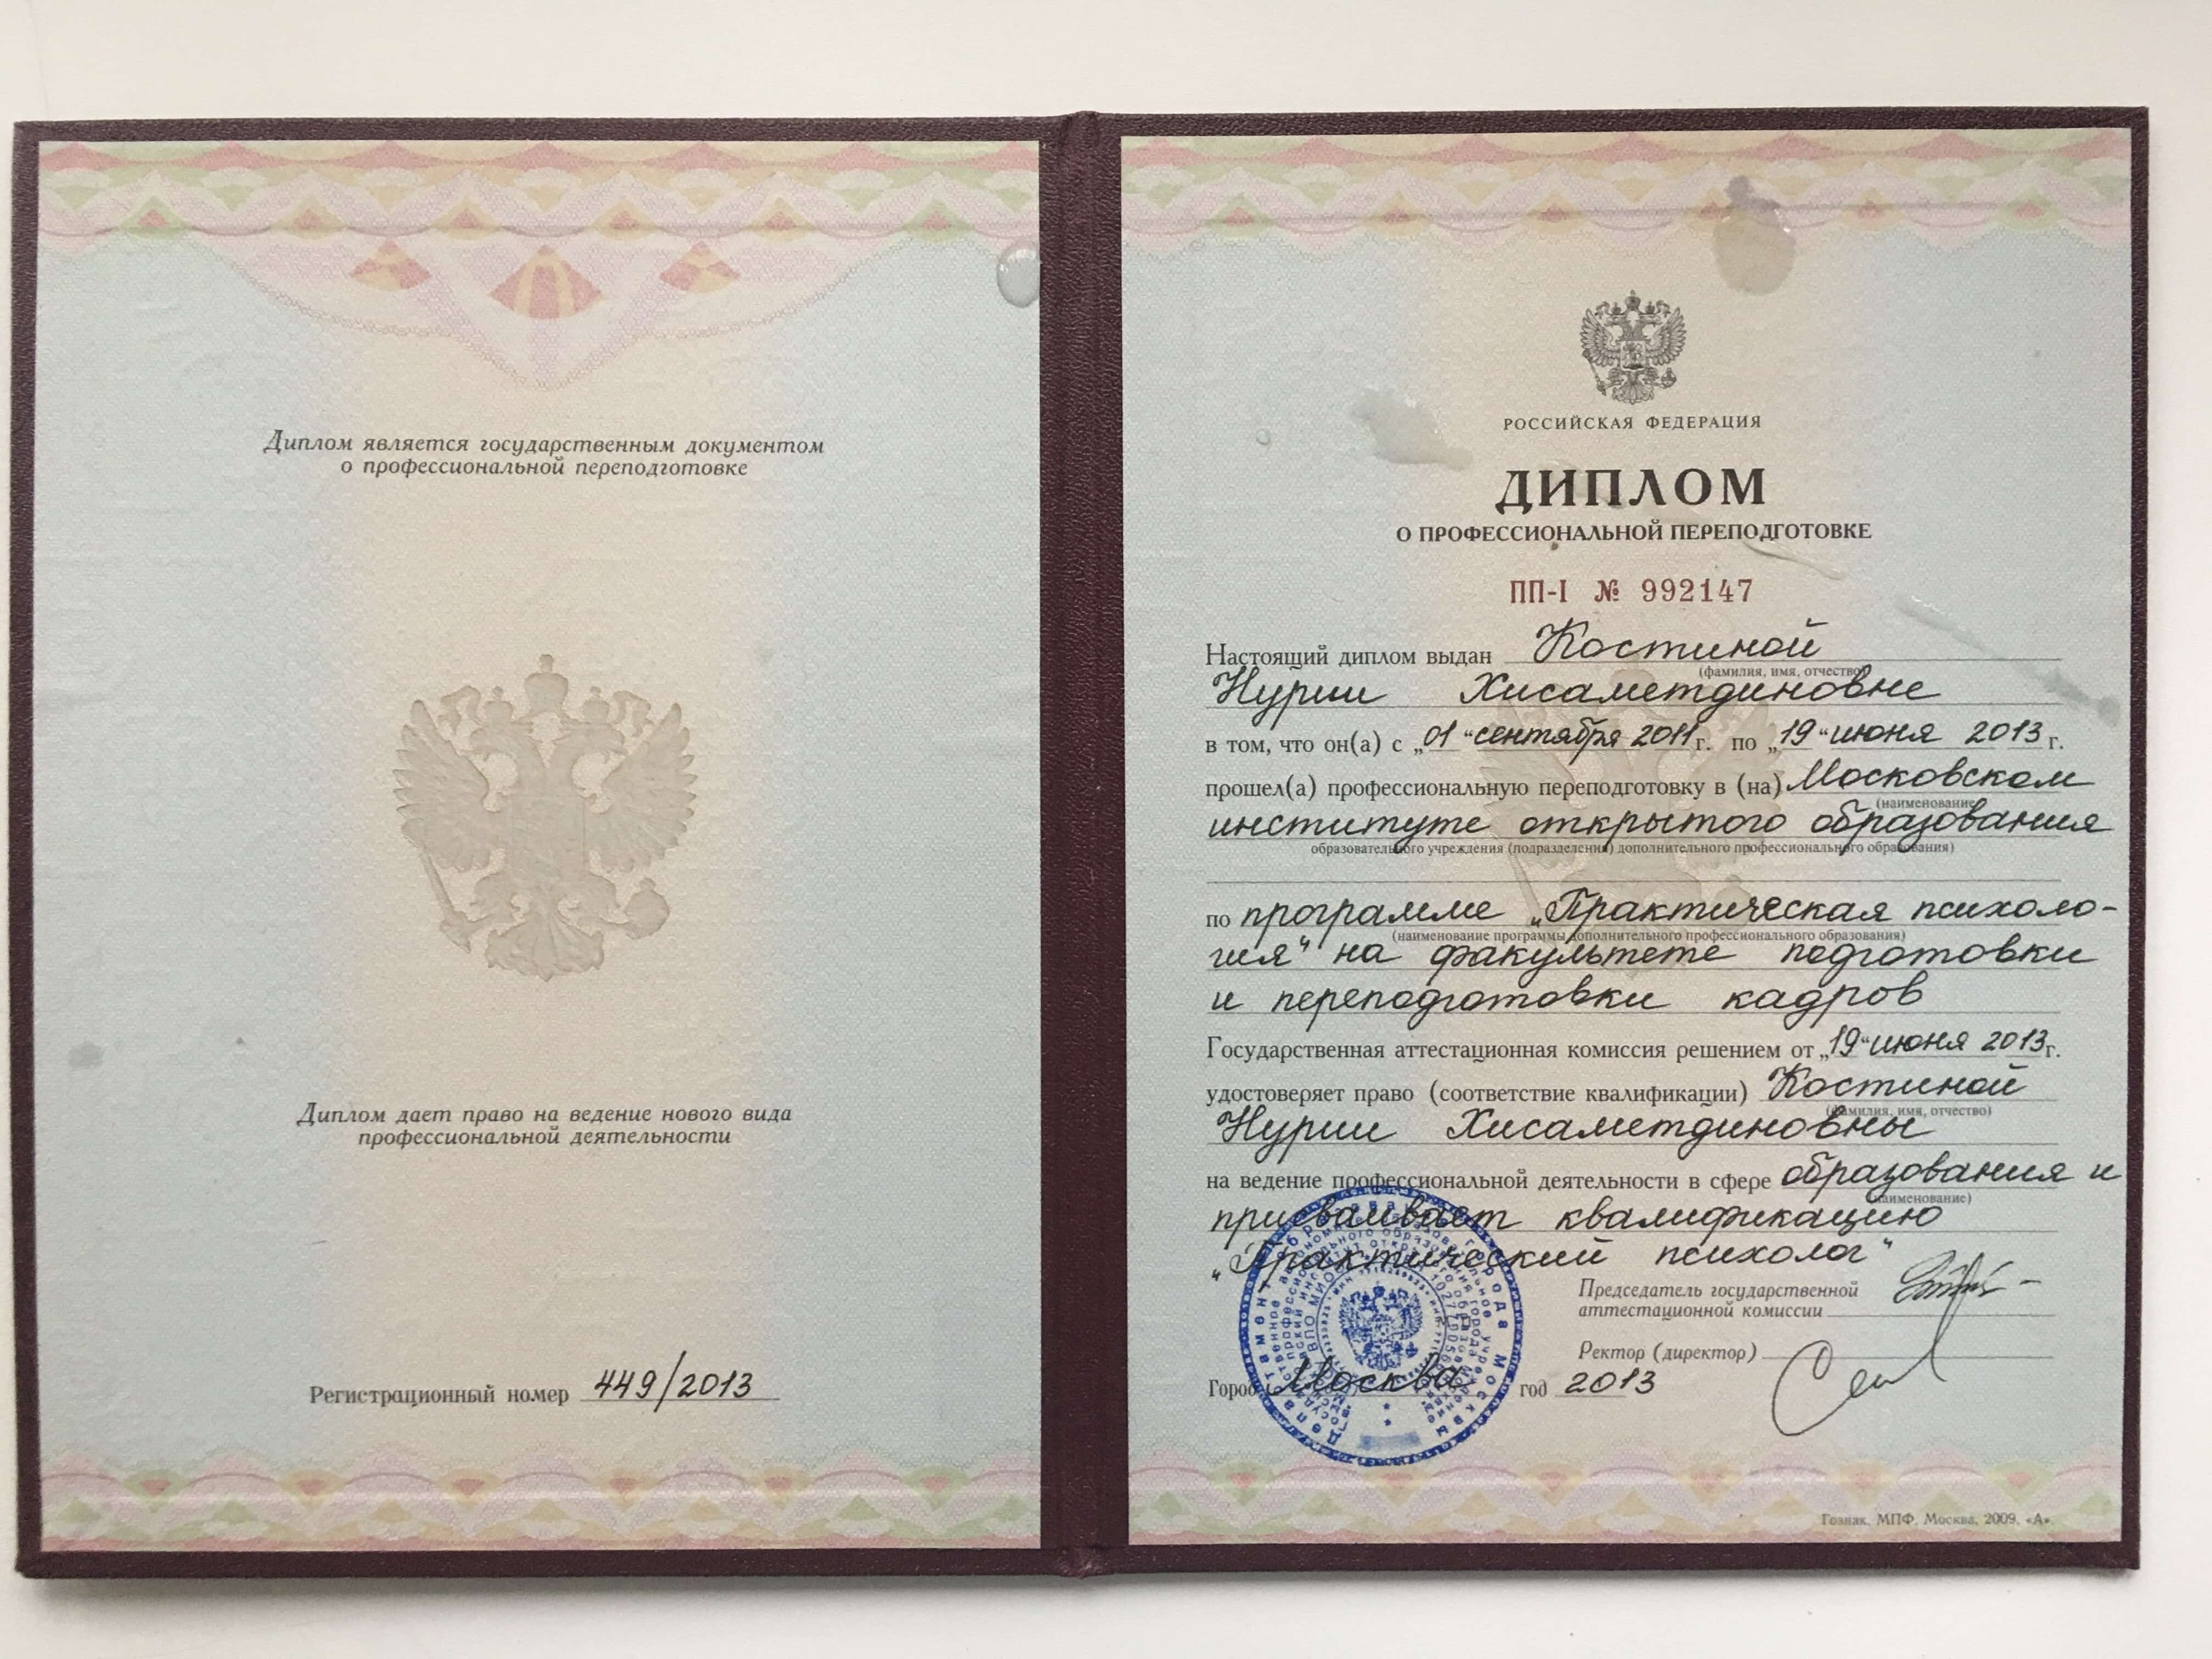 Диплом является государственным документом
о профессиональной переподготовке
Диплом дает право на ведение нового вида
профессиональной деятельности
Регистрационный номер 449/2013
РОССИЙСКАЯ ФЕДЕРАЦИЯ
ДИПЛОМ
О ПРОФЕССИОНАЛЬНОЙ ПЕРЕПОДГОТОВКЕ
ПП-I № 992147
Настоящий диплом выдан Костиной
(фамилия, имя, отчество)
Нурии Хисаметдиновне
в том, что он(а) с „01“ сентября 2011 г. по „19“ июня 2013 г.
прошел(а) профессиональную переподготовку в (на) Московском
(наименование
институте открытого образования
образовательного учреждения (подразделения) дополнительного профессионального образования)
по программе „Практическая психоло-
(наименование программы дополнительного профессионального образования)
гия“ на факультете подготовки
и переподготовки кадров
Государственная аттестационная комиссия решением от „19“ июня 2013 г.
удостоверяет право (соответствие квалификации) Костиной
(фамилия, имя, отчество)
Нурии Хисаметдиновны
на ведение профессиональной деятельности в сфере образования и
(наименование)
присваивает квалификацию
„Практический психолог“
Председатель государственной
аттестационной комиссии
Ректор (директор)
Город Москва год 2013
Департамент образования города Москвы
Гознак, МПФ, Москва, 2009, «А».